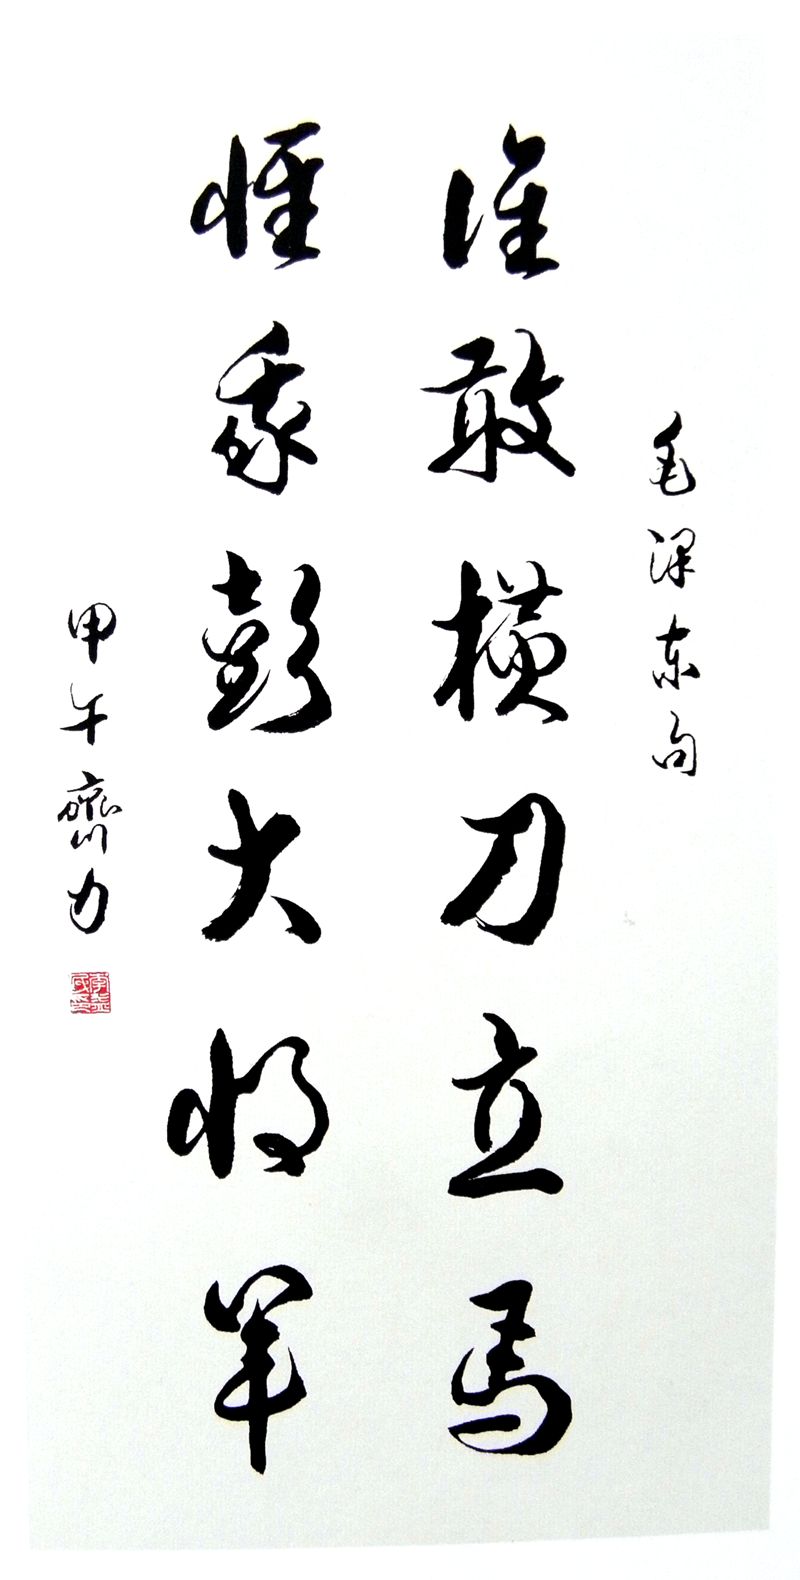 毛泽东句
谁敢横刀立马
惟我彭大将军
甲午齊力